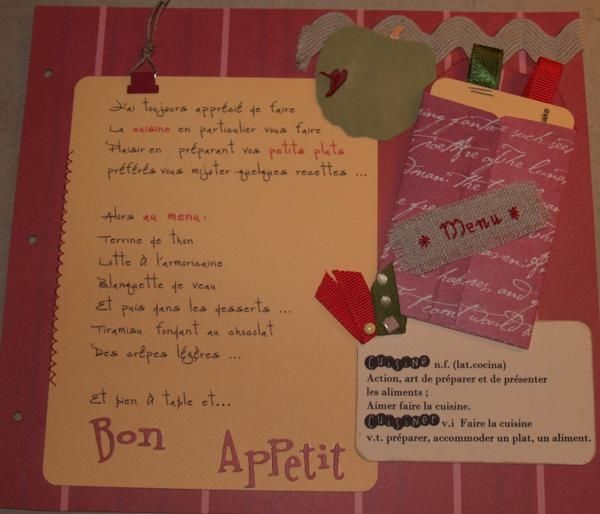 J'ai toujours apprécié de faire
La cuisine en particulier vous faire
Plaisir en préparant vos petits plats
préférés vous mijoter quelques recettes ...
Alors au menu :
Terrine de thon
Lotte à l'armoricaine
Blanquette de veau
Et puis dans les desserts ...
Tiramisu fondant au chocolat
Des crêpes légères ...
Et bien à table et...
Bon Appetit
* Menu *
Cuisine n.f. (lat.cocina)
Action, art de préparer et de présenter
les aliments ;
Aimer faire la cuisine.
Cuisiner v.i Faire la cuisine
v.t. préparer, accommoder un plat, un aliment.